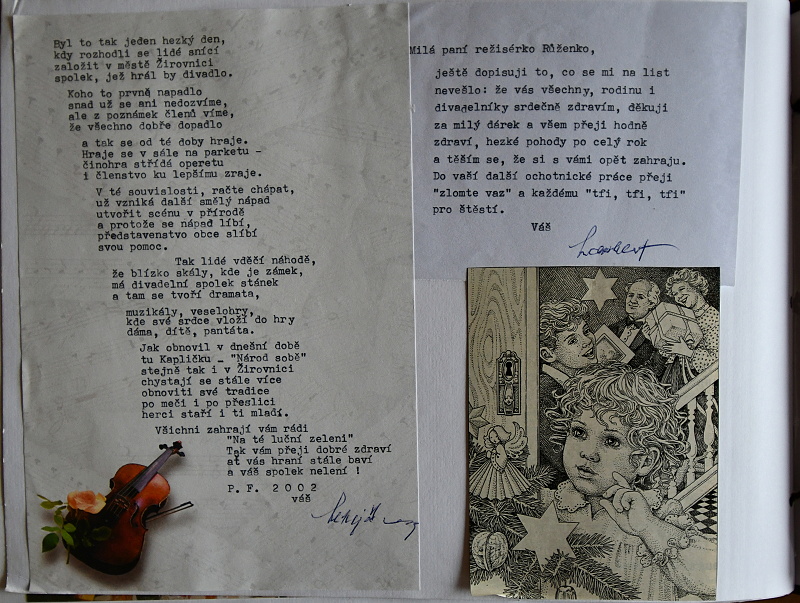 Byl to tak jeden hezký den,
kdy rozhodli se lidé snící
založit v městě Žirovnici
spolek, jež hrál by divadlo.
Koho to prvně napadlo
snad už se ani nedozvíme,
ale z poznámek členů víme,
že všechno dobře dopadlo
a tak se od té doby hraje.
Hraje se v sále na parketu –
činohra střídá operetu
i členstvo ku lepšímu zraje.
V té souvislosti, račte chápat,
už vzniká další smělý nápad
utvořit scénu v přírodě
a protože se nápad líbí,
představenstvo obce slíbí
svou pomoc.
Tak lidé vděčí náhodě,
že blízko skály, kde je zámek,
má divadelní spolek stánek
a tam se tvoří dramata,
muzikály, veselohry,
kde své srdce vloží do hry
dáma, dítě, pantáta.
Jak obnovil v dnešní době
tu Kapličku – "Národ sobě"
stejně tak i v Žirovnici
chystají se stále více
obnoviti své tradice
po meči i po přeslici
herci staří i ti mladí.
Všichni zahrají vám rádi
"Na té luční zeleni"
Tak vám přeji dobré zdraví
ať vás hraní stále baví
a váš spolek nelení !
P. F. 2 0 0 2
váš
Milá paní režisérko Růženko,
ještě dopisuji to, co se mi na list
nevešlo: že vás všechny, rodinu i
divadelníky srdečně zdravím, děkuji
za milý dárek a všem přeji hodně
zdraví, hezké pohody po celý rok
a těším se, že si s vámi opět zahraju.
Do vaší další ochotnické práce přeji
"zlomte vaz" a každému "tfi, tfi, tfi"
pro štěstí.
Váš